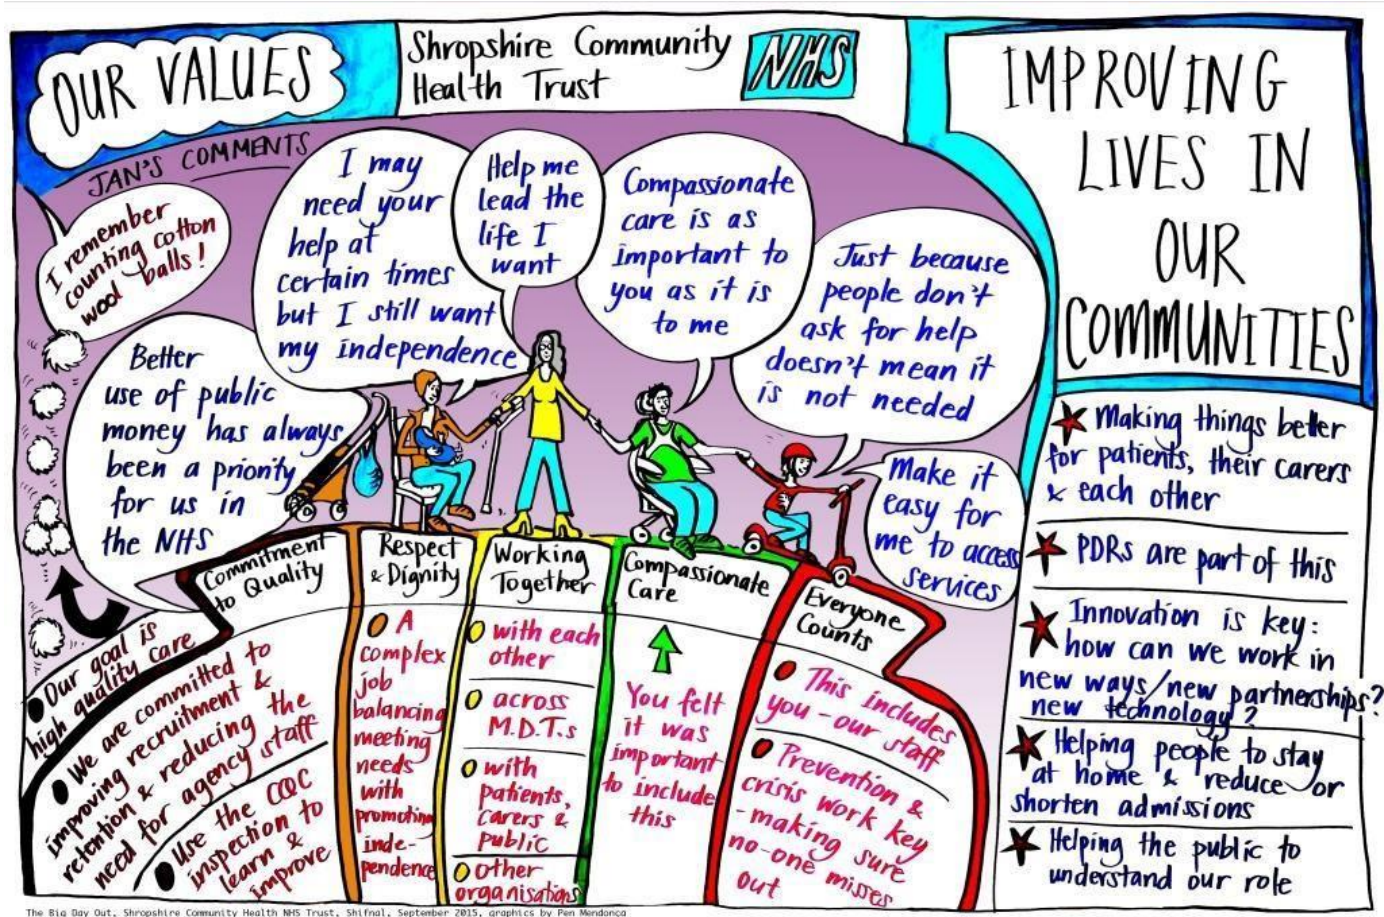 OUR VALUES
Shropshire Community
Health Trust
NHS
JAN'S COMMENTS
I remember
counting cotton
wool balls!
Better
use of public
money has always
been a priority
for us in
the NHS
I may
need your
help at
certain times
but I still want
my independence
Help me
lead the
life I
want
Compassionate
care is as
important to
you as it is
to me
Just because
people don't
ask for help
doesn't mean it
is not needed
Make it
easy for
me to access
services
Commitment
to Quality
Our goal is
high quality care
We are committed to
improving recruitment &
retention & reducing the
need for agency staff
Use the CQC
inspection to
learn &
improve
Respect
& Dignity
A
complex
job
balancing
meeting
needs
with
promoting
inde-
pendence
Working
Together
with each
other
across
M.D.T.s
with
patients,
carers &
public
other
organisations
Compassionate
Care
You felt
it was
important
to include
this
Everyone
Counts
This includes
you - our staff
Prevention &
crisis work key
- making sure
no-one misses
out
IMPROVING
LIVES IN
OUR
COMMUNITIES
Making things better
for patients, their carers
& each other
PDRs are part of this
Innovation is key:
how can we work in
new ways/new partnerships?
new technology?
Helping people to stay
at home & reduce or
shorten admissions
Helping the public to
understand our role
The Big Day Out, Shropshire Community Health NHS Trust, Shifnal, September 2015, graphics by Pen Mendonca